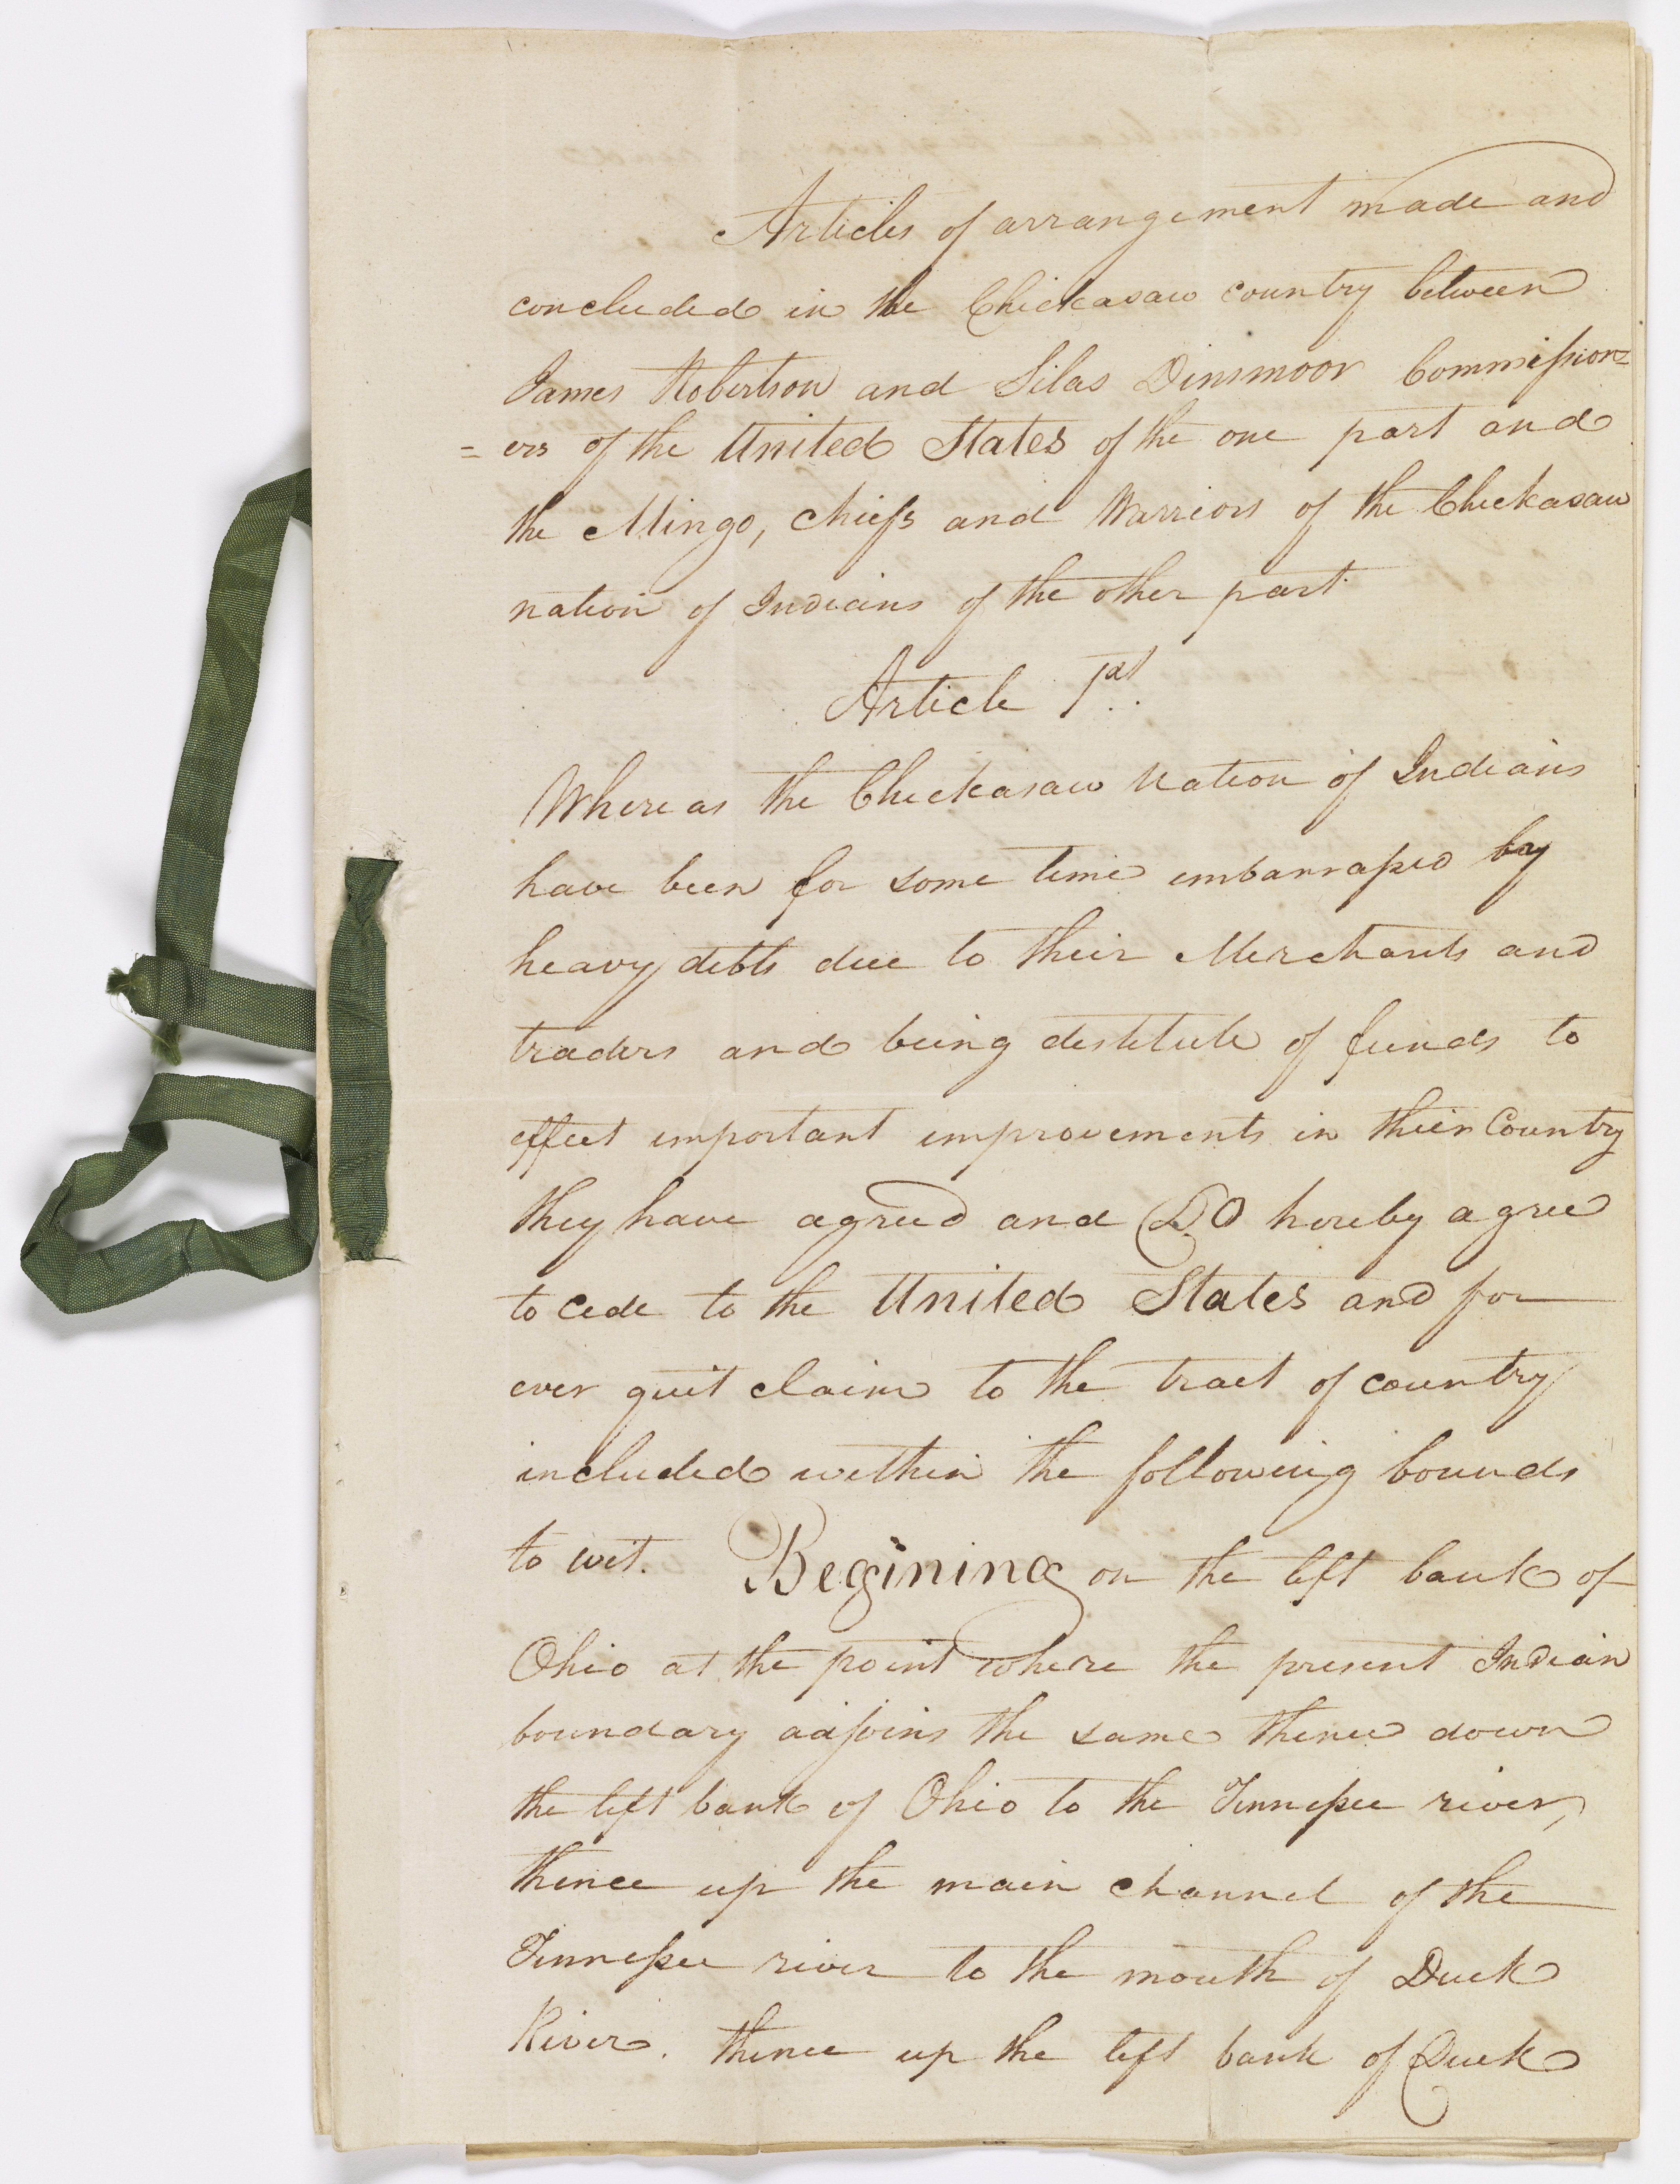 Articles of arrangement made and
concluded in the Chickasaw country between
James Robertson and Silas Dinsmoor Commission=
=ers of the United States of the one part and
the Mingo, chiefs and Warriors of the Chickasaw
nation of Indians of the other part.
Article 1st.
Whereas the Chickasaw Nation of Indians
have been for some time embarrassed by
heavy debts due to their Merchants and
traders and being destitute of funds to
effect important improvements in their Country
they have agreed and DO hereby agree
to cede to the United States and for
ever quit claim to the tract of country
included within the following bounds
to wit. Begining on the left bank of
Ohio at the point where the present Indian
boundary adjoins the same thence down
the left bank of Ohio to the Tennessee river,
thence up the main channel of the
Tennessee river to the mouth of Duck
River. thence up the left bank of Duck